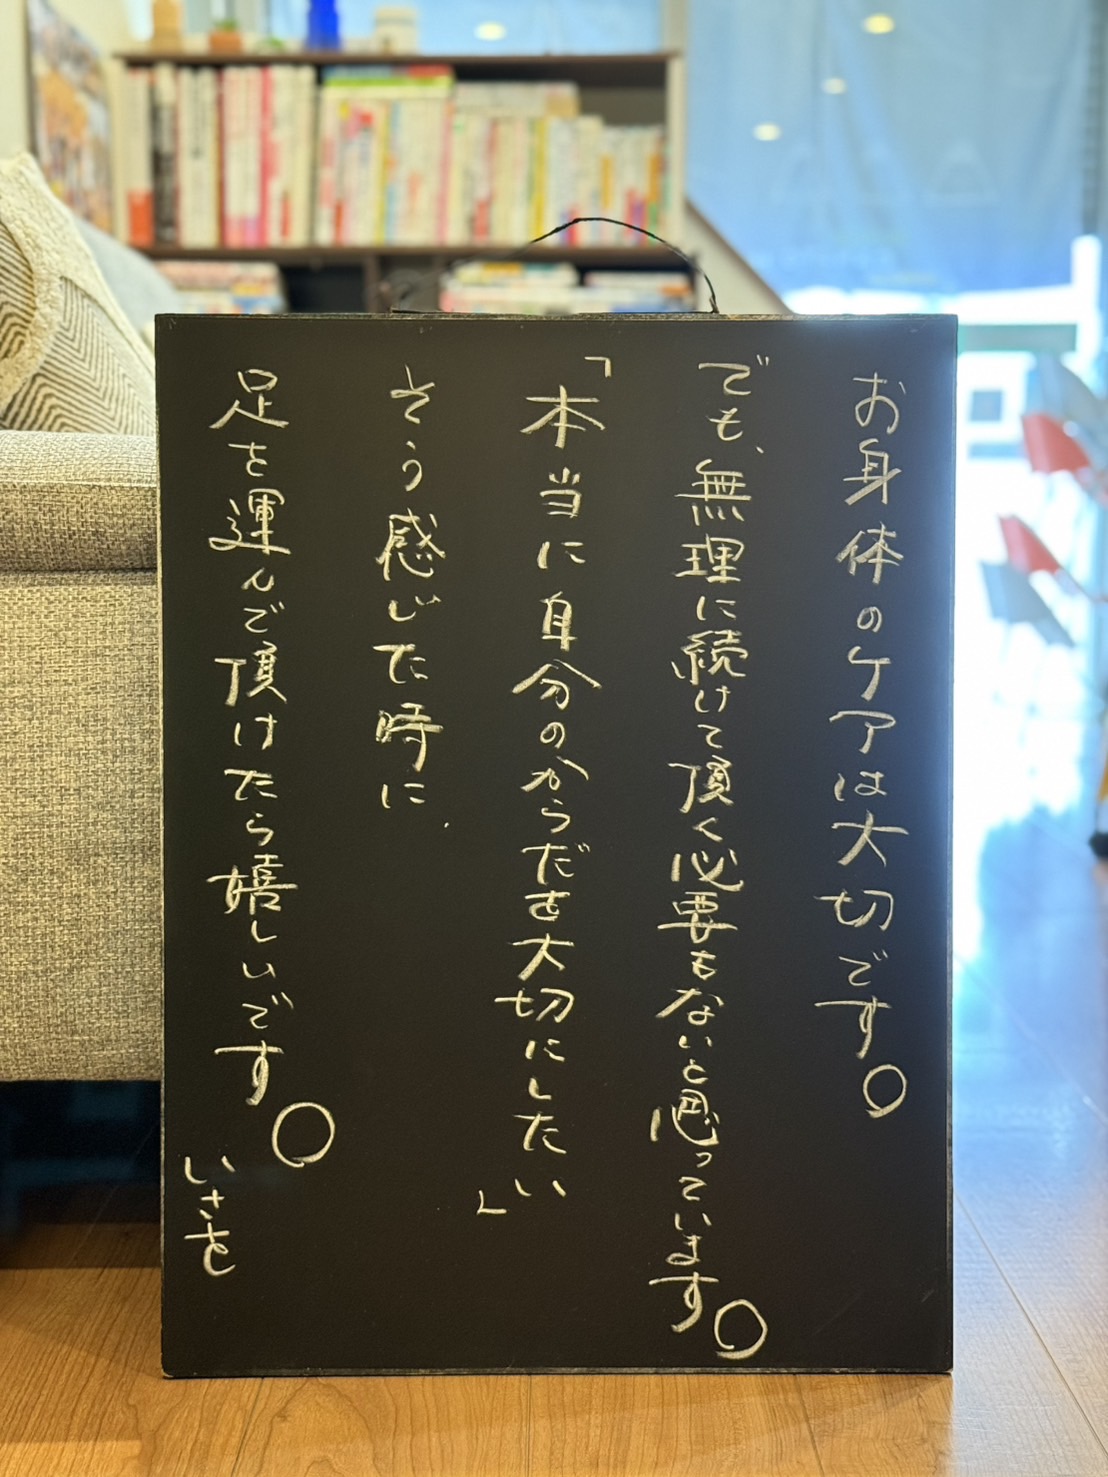 お身体のケアは大切です。
でも、無理に続けて頂く必要もないと思っています。
「本当に自分のからだを大切にしたい」
そう感じた時に
足を運んで頂けたら嬉しいです。
いさを